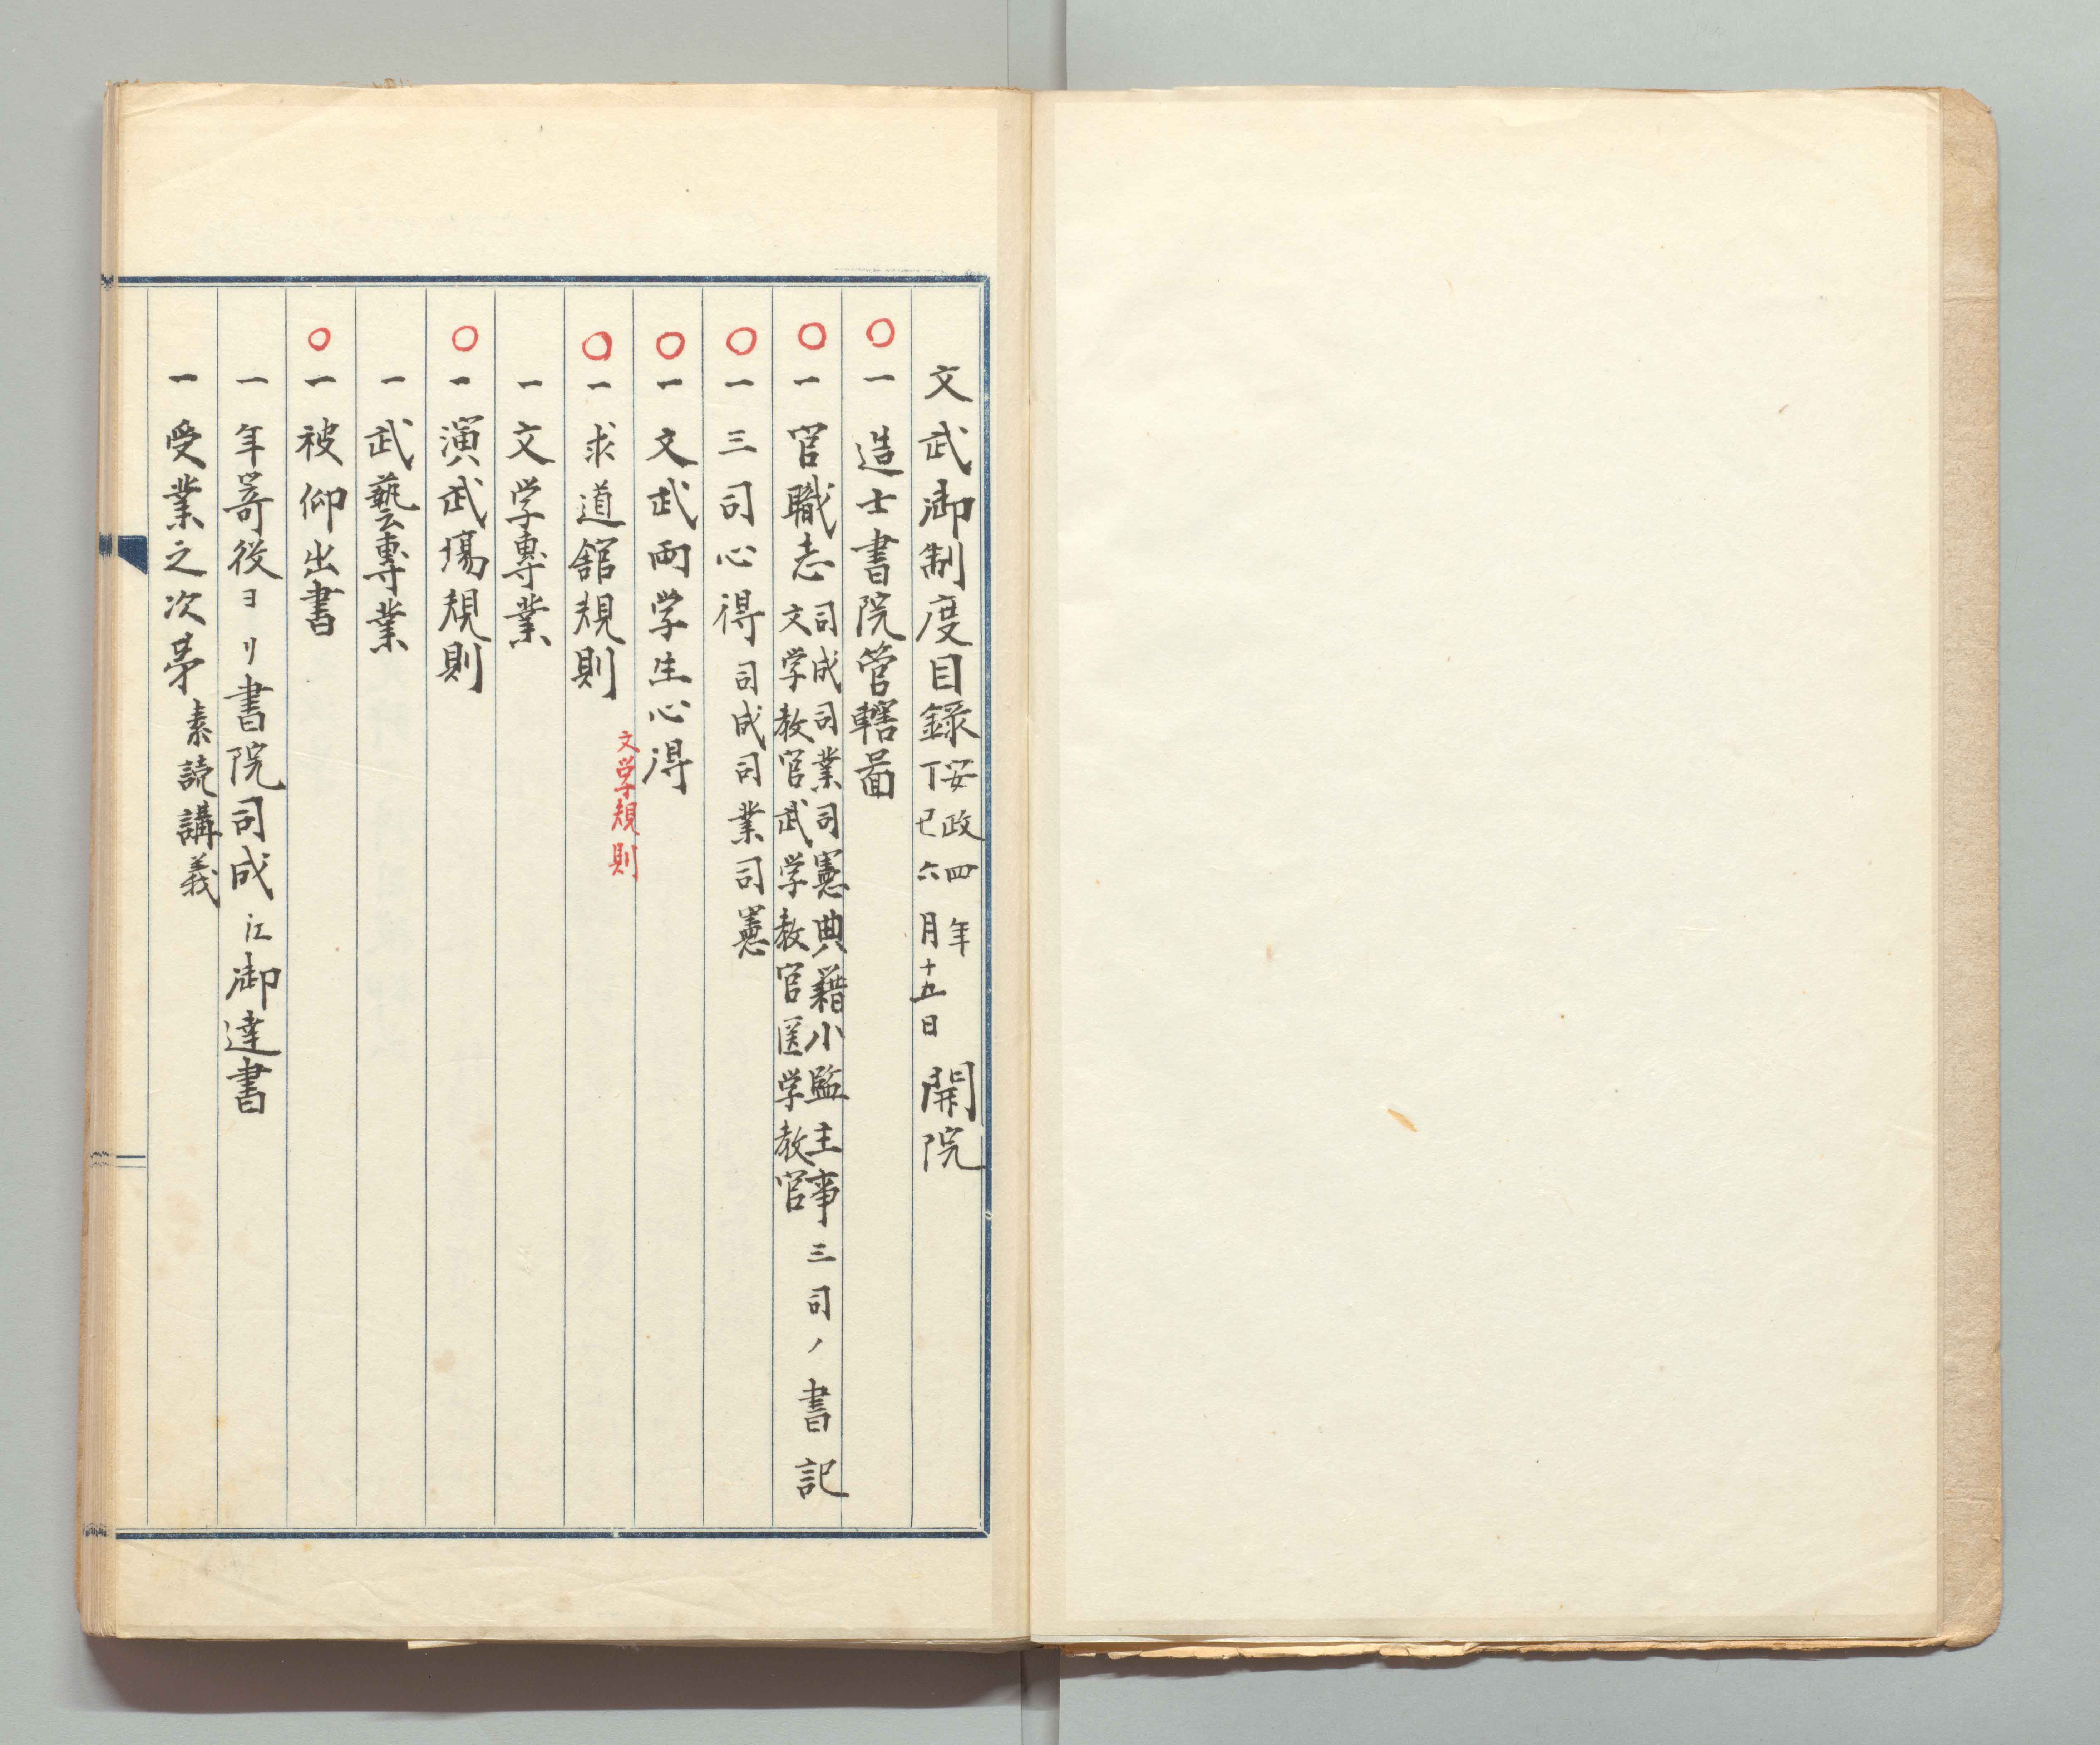 文武御制度目録 安政四年丁巳六月十五日 開院
〇一 造士書院管轄啚
〇一 官職志 司成司業司憲典籍小監主事三司ノ書記
文学教官武学教官医学教官
〇一 三司心得 司成司業司憲
〇一 文武両学生心得
〇一 求道舘規則
文学規則
一 文学専業
〇一 演武場規則
一 武藝専業
〇一 被仰出書
一 年寄役ヨリ書院司成江御達書
一 受業之次茅 素読講義